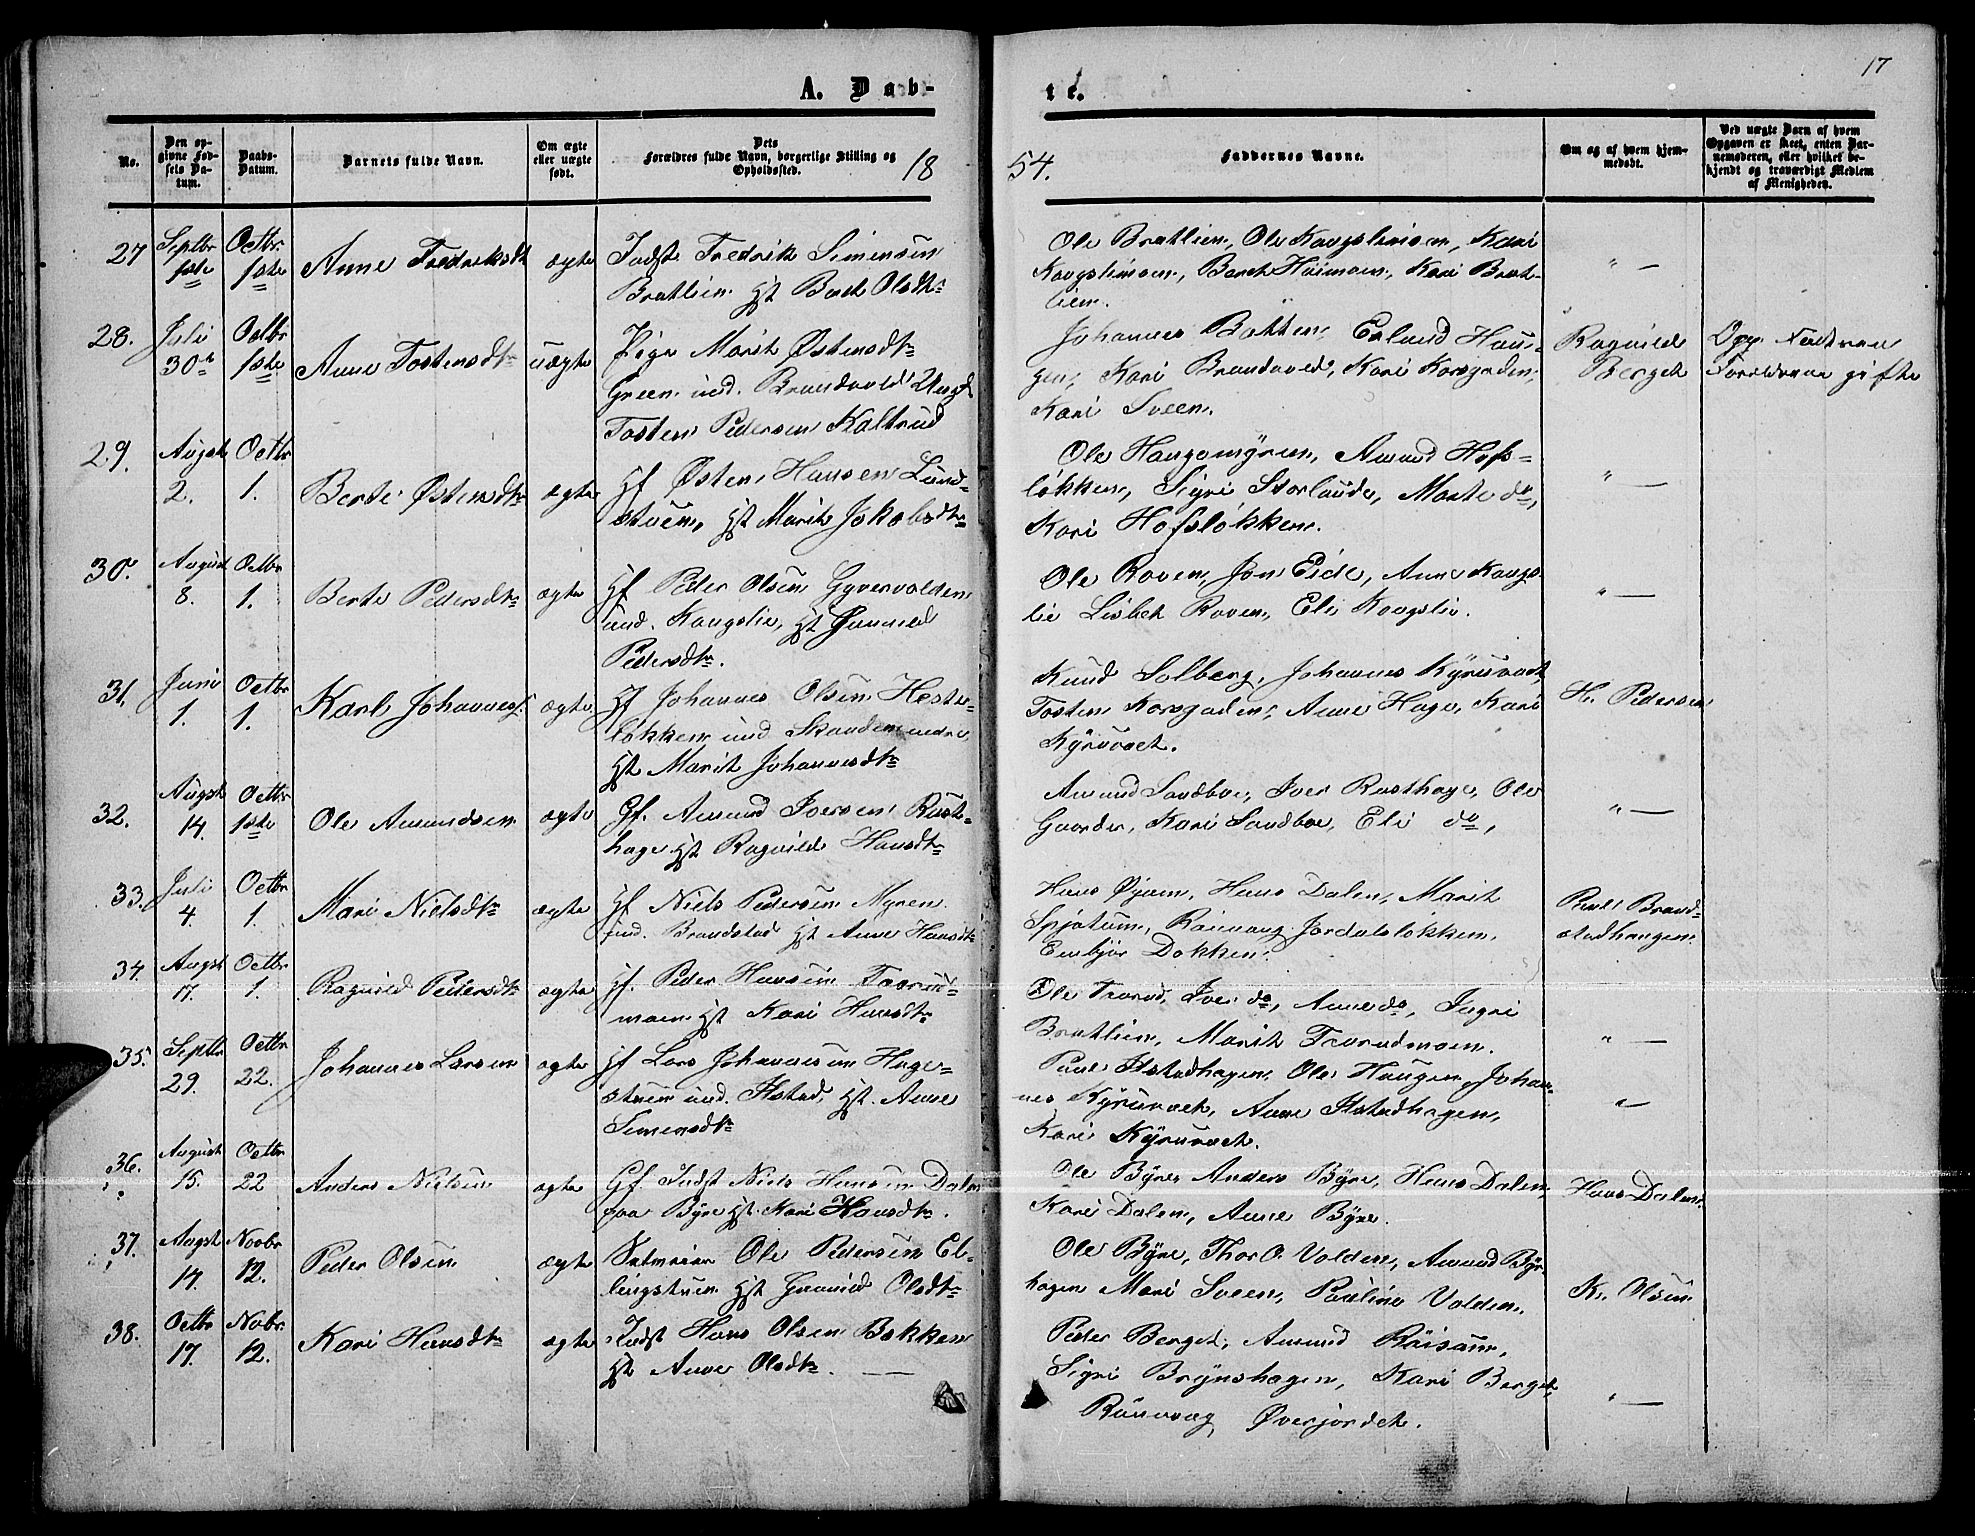 17
A. Dab-
te.
No.
Den op-
givne Fød-
sels Da-
tum.
Daabs-
Datum.
Barnets fulde Navn.
Om ægte
eller uægte
født.
Dets
Forældres fulde Navn, borgerlige Stilling og
Opholdssted.
18
54.
Faddernes Navne.
Om og af hvem hjem-
medøbt.
Ved uægte Barn af hvem
Opgaven er skeet, enten Bar-
nemoderen, eller hvilket be-
kjendt og troværdigt Medlem
af Menigheden.
27 Septbr 1ste Octbr. 1ste Anne Fredriksdt ægte Indst Fredrik Simensen
Bratlien Hst Berit Olsdtr
Ole Bratlien, Ole Kongslimoen, Kari
Kongslimoen, Berit Höimoen, Kari Brat-
lien.
" —
28. Juli 30te Octbr 1ste Anne Tostensdtr uægte Pige Marit Østensdtr
Green und. Brandvold Ungk
Tosten Pedersen Kaltrud
Johannes Bakken, Erland Hau-
gen, Kari Brandvold, Kari Korsgaden,
Kari Sveen.
Ragnild
Berget
Opg. Fadderne
Forældrene gifte
29. Augst 2. Octbr 1. Berte Østensdtr ægte Hf Østen Hansen Lund-
stuen, Hst Marit Jakobsdtr
Ole Haugomyren, Amund Hofs-
løkken, Sigri Storlunde, Marte do,
Kari Hofsløkken.
" —
30. August 8. Octbr 1. Berte Pedersdtr ægte Hf Peder Olsen Gyvervolden
und. Kongslie, Hst Gunnild
Pedersdtr.
Ole Roven, Jon Eide, Anne Kongs-
lie Lisbet Roven, Eli Kongslie.
" —
31. Juni 1. Octbr 1. Karl Johannes. ægte Hf Johannes Olsen Heste-
løkken und Skanden nedre,
Hst Marit Johannesdtr
Knud Solberg, Johannes Kyruvaet,
Tosten Korsgaden, Anne Hage, Kari
Kyruvaet.
H. Pedersen
32. Augst 14. Octbr 1ste Ole Amundsen ægte Gf. Amund Iversen Rust-
hage Hst Ragnild Hansdtr
Amund Sandboe, Iver Rusthage, Ole
Gaarder, Kari Sandboe, Eli do,
" —
33. Juli 4. Octbr 1. Mari Nielsdtr ægte Hf Niels Pedersen Myren
und. Brandstad Hst Anne Hansdtr
Hans Øyom, Hans Dalen, Marit
Spjøtum, Rönnaug Jordalsløkken,
Embjør Dokken.
Paul Brand-
stadhaugen
34. Augst 17. Octbr 1. Ragnild Pedersdtr ægte Hf. Peder Hansen Toorud-
moen Hst Kari Hansdtr
Ole Toorud, Iver do, Anne do, Ingri
Bratlien, Marit Toorudmoen.
" —
35. Septbr 29. Octbr 22. Johannes Larsen ægte Hf Lars Johannesen Hage-
stuen und. Ilstad, Hst. Anne
Simensdtr
Paul Ilstadhagen, Ole Haugen, Johan-
nes Kyruvaet, Anne Ilstadhagen,
Kari Kyruvaet.
" —
36. August 15. Octbr 22 Anders Nielsen ægte Gf. Indst Niels Hansen Dalen
paa Byre Hst. Kari Hansdtr.
Ole Byre Anders Byre, Hans Dalen,
Kari Dalen, Anne Byre.
Hans Dalen.
37. Augst 14. Novbr 12. Peder Olsen ægte Selveier Ole Pedersen El-
lingstuen Hst Gunnild Olsdtr
Ole Byre, Thor O. Volden, Amund Byr-
hagen Mari Sveen, Pauline Volden.
K. Olsen
38. Octbr 17. Novbr. 12. Kari Hansdtr ægte Indst Hans Olsen Bakken
Hst Anne Olsdtr. —
Peder Berget, Amund Röisum,
Sigri Brynshagen, Kari Berget,
Rönnaug Øverjordet.
" —